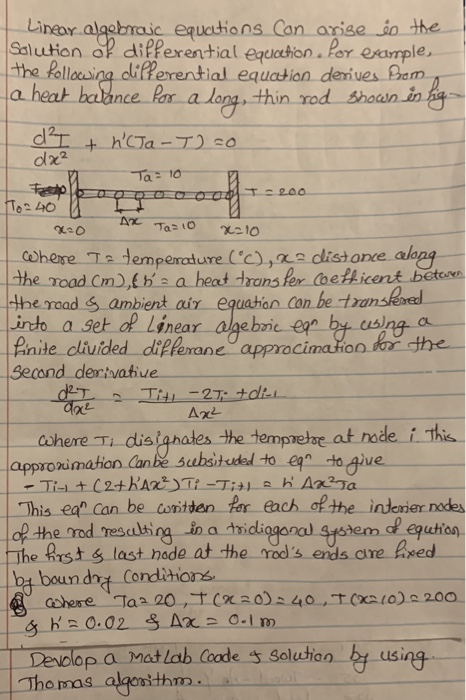 Linear algebraic equations Can arise in the
Solution of differential equation. For example,
the following differential equation derives from
a heat balance for a long, thin rod shown in fig-
d²T/dx² + h'(Ta-T) = 0
Ta = 10
T = 200
To = 40
x=0 Δx Ta=10 x=10
where T = temperature (°C), x = distance along
the road (m), & h' = a heat transfer Coefficent between
the road & ambient air equation can be transfered
into a set of Linear algebric eqn by using a
finite divided differane approcimation for the
Second derivative
d²T/dx² = Ti+1 - 2Ti + di-1 / Δx²
where Ti disignates the tempretoe at node i. This
approximation Can be subsituded to eqn to give
- Ti-1 + (2+h'Δx²) Ti - Ti+1 = h' Δx² Ta
This eqn can be written for each of the interier nodes
of the rod resulting in a tridiagonal system of eqution
The first & last node at the rod's ends are fixed
by boundry Conditions.
where Ta = 20, T(x=0) = 40, T(x=10) = 200
& h' = 0.02 & Δx = 0.1 m
Devolop a Mat Lab Coade & Solution by using
Thomas algorithm.